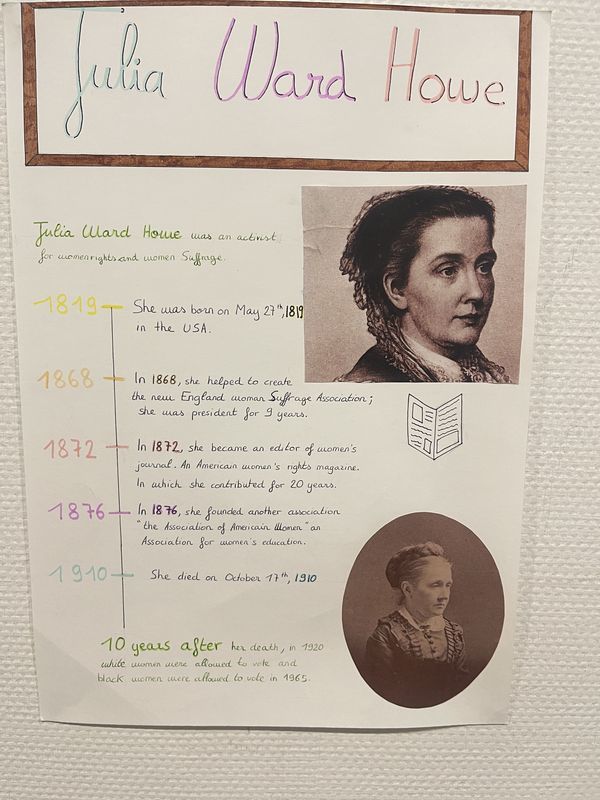 Julia Ward Howe
Julia Ward Howe was an activist
for women rights and women Suffrage.
1819
She was born on May 27th, 1819
in the USA.
1868
In 1868, she helped to create
the new England woman Suffrage Association;
she was president for 9 years.
1872
In 1872, she became an editor of women's
journal. An Americain women's rights magazine.
In which she contributed for 20 years.
1876
In 1876, she founded another association
"the Association of Americain Women" an
Association for women's education.
1910
She died on October 17th, 1910
10 years after her death, in 1920
white women were allowed to vote and
black women were allowed to vote in 1965.